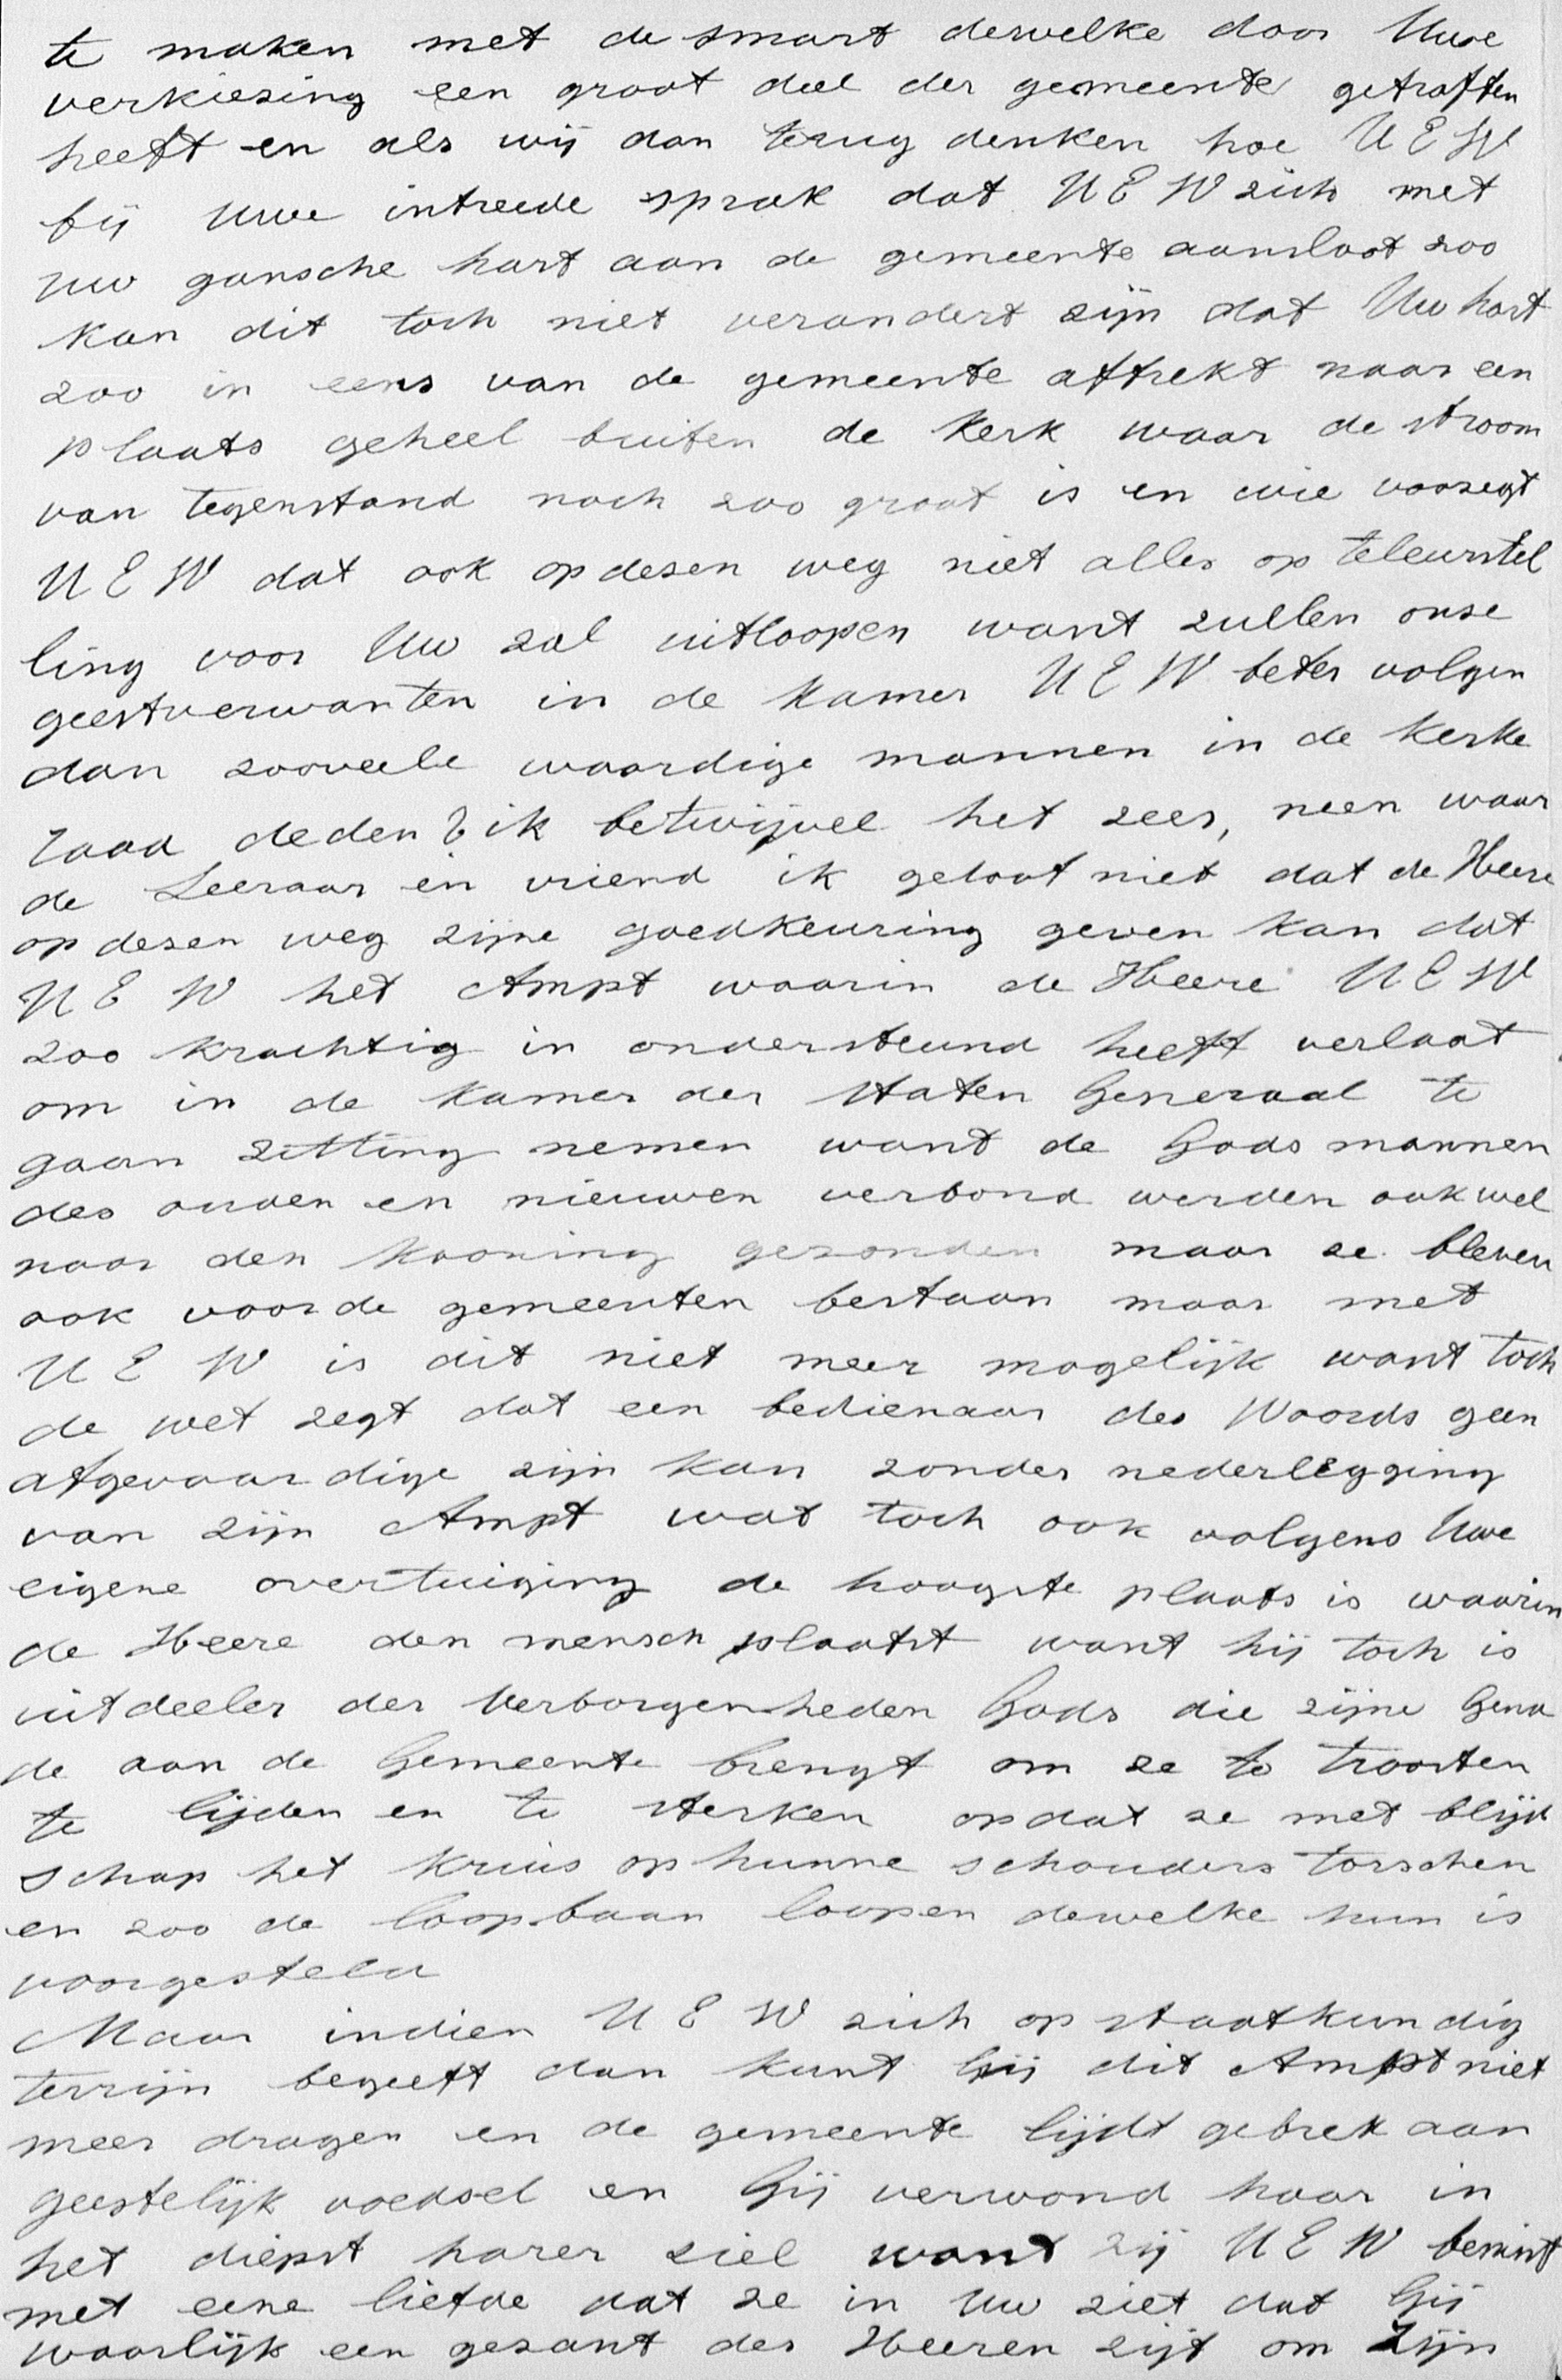 te maken met de smart derwelke door Uwe
verkiesing een groot deel der gemeente getroffen
heeft en als wij dan terug denken hoe U E W
bij Uwe intreede sprak dat U E W zich met
Uw gansche hart aan de gemeente aansloot zoo
kan dit toch niet verandert zijn dat Uw hart
zoo in eens van de gemeente aftrekt naar een
plaats geheel buiten de kerk waar de stroom
van tegenstand noch zoo groot is en wie voorzegt
U E W dat ook op desen weg niet alles op teleurstel
ling voor Uw zal uitloopen want zullen onse
geestverwanten in de Kamer U E W beter volgen
dan zooveele waardige mannen in de Kerke
raad deden? ik betwijvel het zeer, neen waar
de Leeraar en vriend ik geloof niet dat de Heere
op desen weg zijne goedkeuring geven kan dat
U E W het Ampt waarin de Heere U E W
zoo krachtig in ondersteund heeft verlaat
om in de Kamer der Staten Generaal te
gaan zitting nemen want de Gods mannen
des ouden en nieuwen verbond werden ook wel
naar den Kooning gezonden maar ze bleven
ook voor de gemeenten bestaan maar met
U E W is dit niet meer mogelijk want toch
de wet zegt dat een bedienaar des Woords geen
afgevaardige zijn kan zonder nederlegging
van zijn Ampt wat toch ook volgens Uwe
eigene overtuiging de hoogste plaats is waarin
de Heere den mensch plaatst want hij toch is
uitdeeler der Verborgenheden Gods die zijne Gena
de aan de Gemeente brengt om ze te troosten
te lijden en te sterken opdat ze met blijd
schap het kruis op hunne schouders torschen
en zoo de loopbaan loopen dewelke hun is
voorgesteld
Maar indien U E W zich op staatkundig
terrijn begeeft dan kunt Gij dit Ampt niet
meer dragen en de gemeente lijdt gebrek aan
geestelijk voedsel en Gij verwond haar in
het diepst harer ziel want zij U E W bemint
met eene liefde dat ze in Uw ziet dat Gij
waarlijk een gezant des Heeren zijt om Zijn